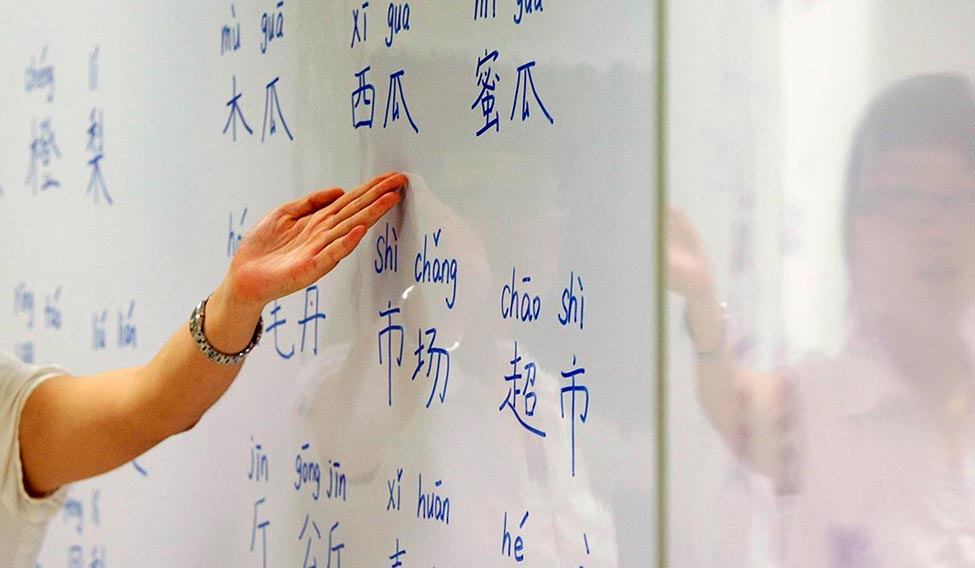 mù guā xī guā mì guā
chéng lí
木瓜 西瓜 蜜瓜
橙 梨
shì chǎng chāo shì
毛丹 市场 超市
liú lián
jīn gōng jīn xǐ huān
hé
斤 公斤